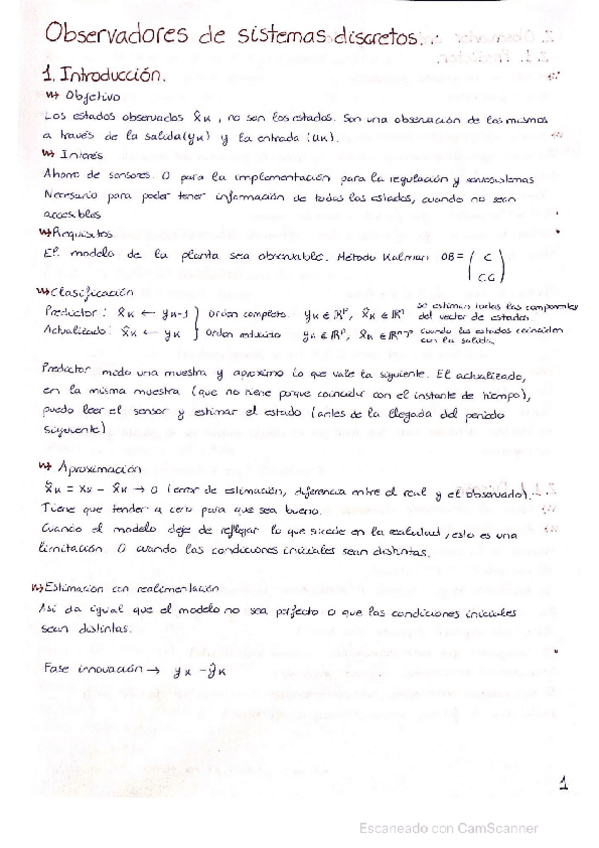 Observadores de sistemas discretos.
1. Introducción.
Objetivo
Los estados observados x̂k, no son los estados. Son una observación de los mismos
a través de la salida (yk) y la entrada (uk).
Interés
Ahorro de sensores. O para la implementación para la regulación y
Necesario para poder tener información de todos los estados, cuando no sean
accesibles
Requisitos
El modelo de la planta sea observable. Método Kalman OB = ( C
CG )
Clasificación
Predictor: x̂k ← yk-1 } Orden completo. yk ∈ ℝᵖ, x̂k ∈ ℝⁿ se estiman todas las componentes del vector de estados.
Actualizado: x̂k ← yk } Orden reducido yk ∈ ℝᵖ, x̂k ∈ ℝⁿ⁻ᵖ cuando los estados coinciden con la salida.
Predictor mido una muestra y aproximo lo que vale la siguiente. El actualizado,
en la misma muestra (que no tiene porque coincidir con el instante de tiempo),
puedo leer el sensor y estimar el estado (antes de la llegada del periodo
siguiente)
Aproximación
x̃k = xk - x̂k → 0 (error de estimación, diferencia entre el real y el observado).
Tiene que tender a cero para que sea bueno.
Cuando el modelo deje de reflejar lo que sucede en la realidad, esto es una
limitación. O cuando las condiciones iniciales sean distintas.
Estimación con realimentación
Así da igual que el modelo no sea perfecto o que las condiciones iniciales
sean distintas.
Fase innovación → yk - ŷk
1
Escaneado con CamScanner